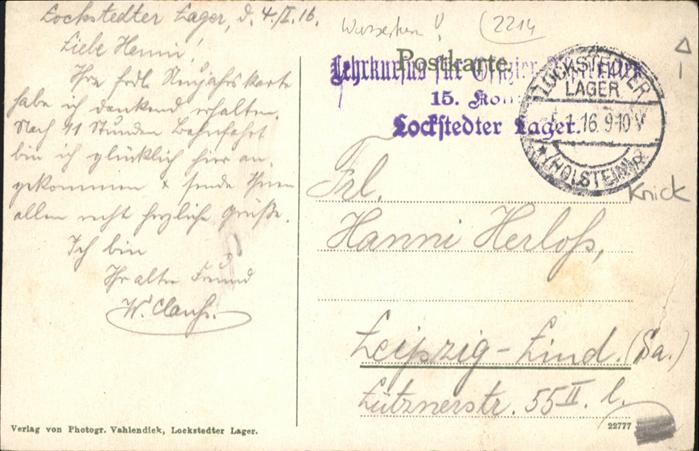 Lockstedter Lager, d. 4./I. 16.
Liebe Hanni!
Ihre frdl. Neujahrskarte
habe ich dankend erhalten.
Nach 41 Stunden Bahnfahrt
bin ich glücklich hier an-
gekommen & sende Ihnen
allen recht herzliche Grüße.
Ich bin
Ihr alter Freund
W.
Verlag von Photogr. Vahlendiek, Lockstedter Lager.
2214
Postkarte
Lehrkursus für Offizier-
15. Kom
Lockstedter Lager.
LOCKSTEDTER
LAGER
5.1.16.9-10V
(HOLSTEIN)
Knick
Frl.
Hanni Herloß,
Leipzig-Lind. (Sa.)
Lütznerstr. 55 II. l.
22777